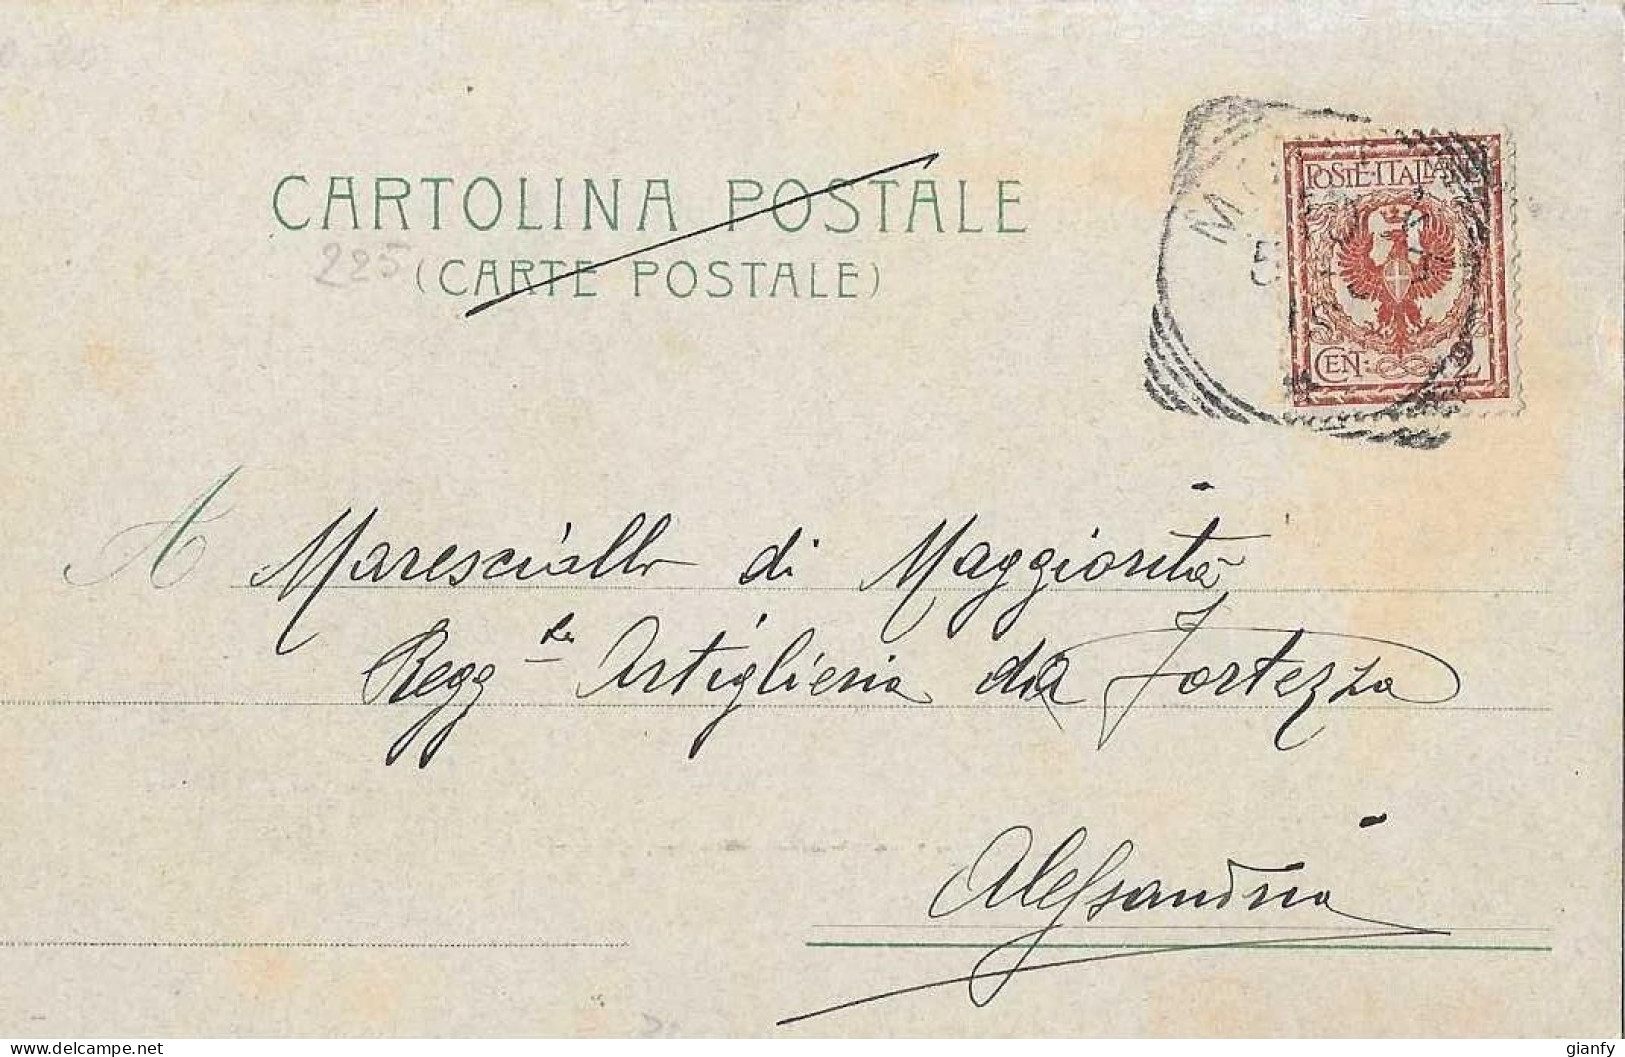 CARTOLINA POSTALE
225
(CARTE POSTALE)
POSTE·ITALIANE
CEN: 2
A Maresciallo di Maggiorità
Regg.to Artiglieria da Fortezza
Alessandria
www.delcampe.net
gianfy